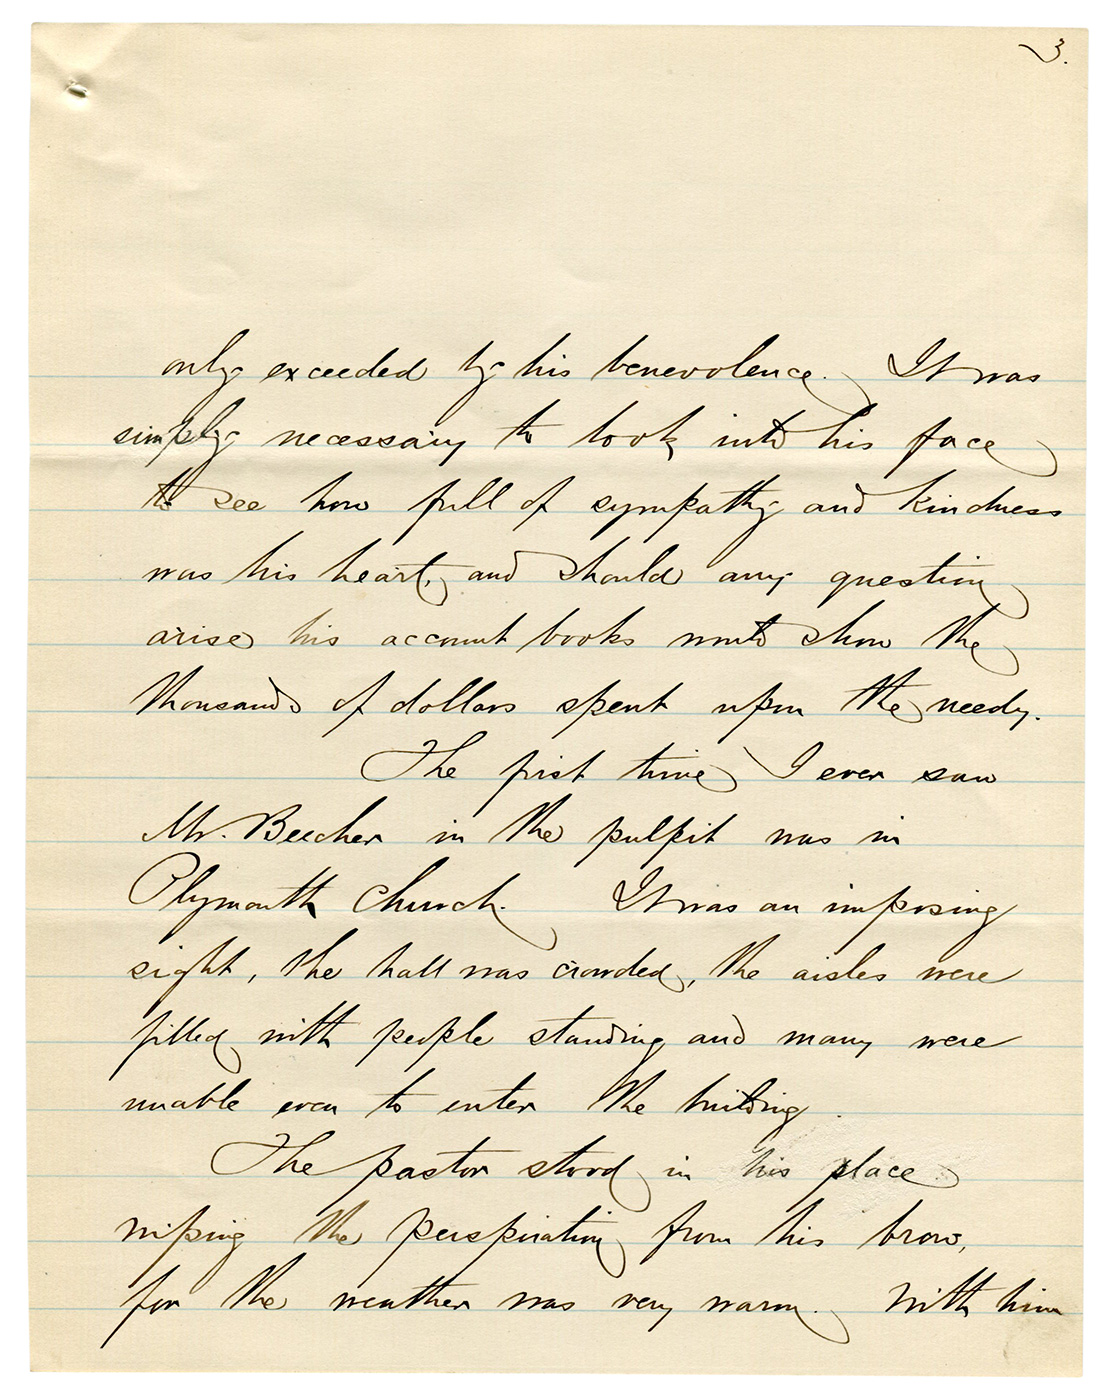 3.
only exceeded by his benevolence. It was
simply necessary to look into his face
to see how full of sympathy and kindness
was his heart, and should any question
arise his account books would show the
thousands of dollars spent upon the needy.
The first time I ever saw
Mr. Beecher in the pulpit was in
Plymouth Church. It was an imposing
sight, the hall was crowded, the aisles were
filled with people standing and many were
unable even to enter the building.
The pastor stood in his place
wiping the perspiration from his brow,
for the weather was very warm. With him